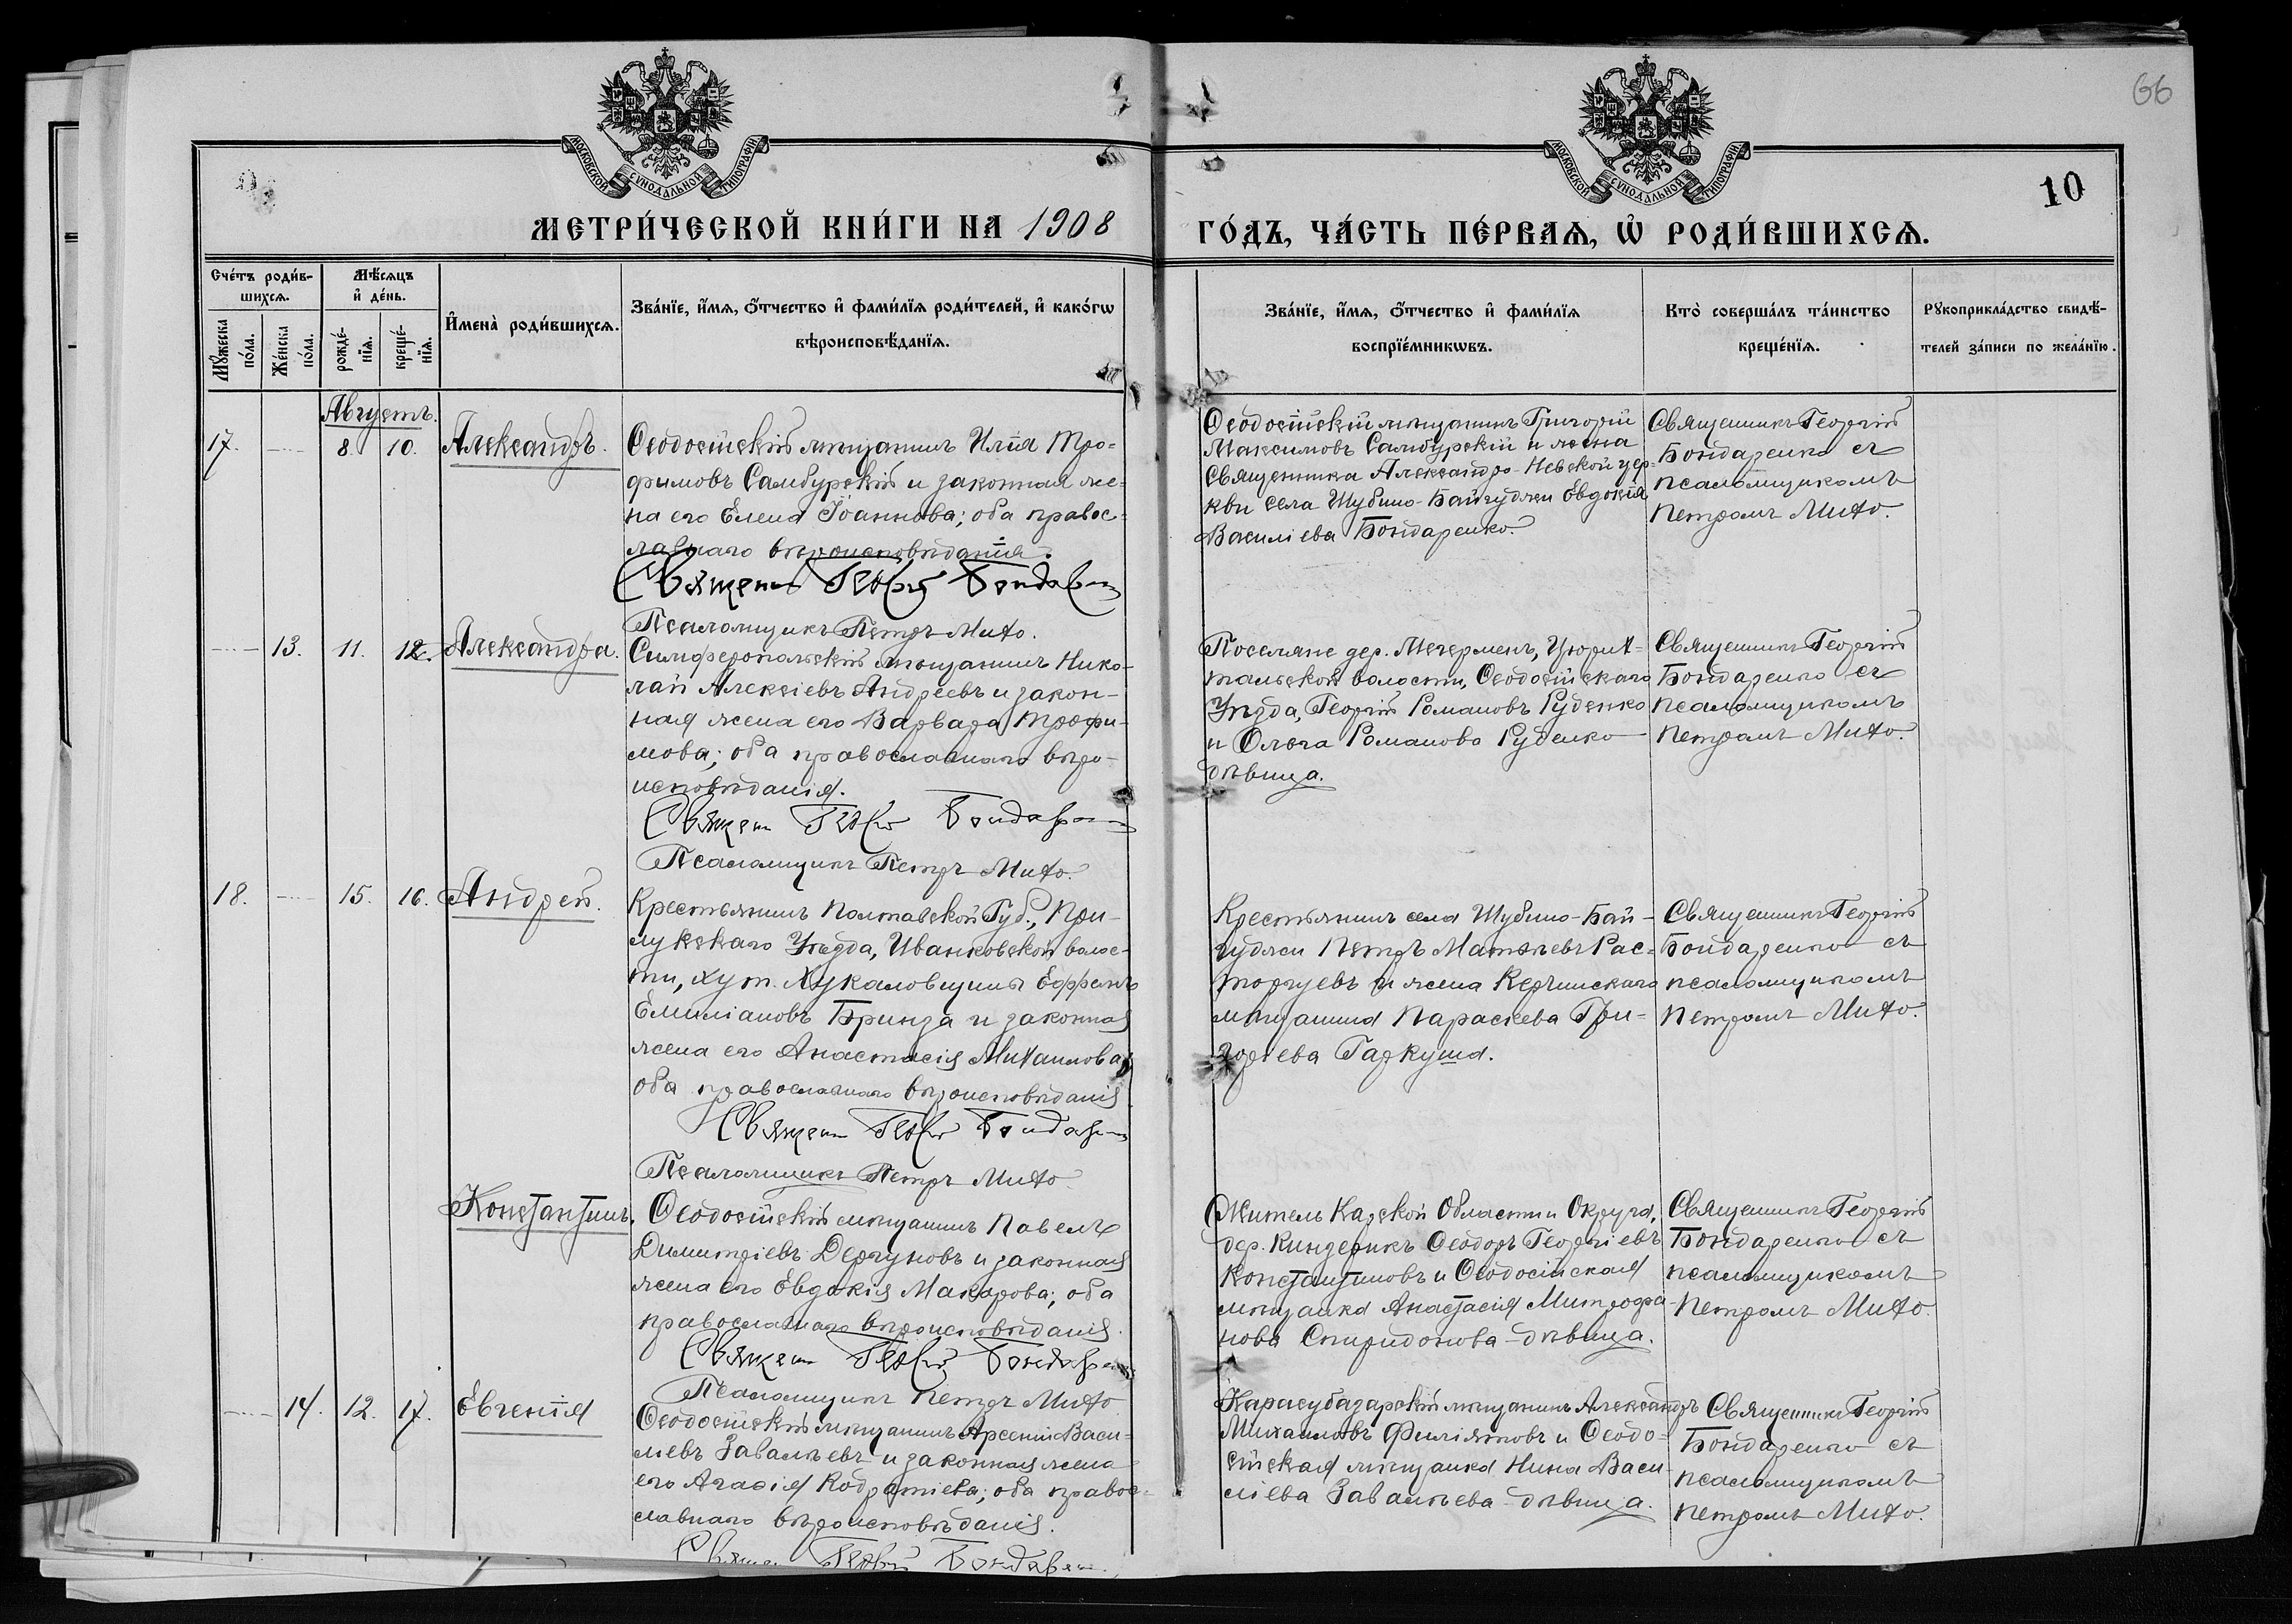 66
МОСКОВСКОЙ СѴНОДАЛЬНОЙ ТИПОГРАФІИ
МОСКОВСКОЙ СѴНОДАЛЬНОЙ ТИПОГРАФІИ
10
МЕТРИ́ЧЕСКОЙ КНИ́ГИ НА 1908
ГО́ДЪ, ЧА́СТЬ ПЕ́РВАѦ, Ѽ РОДИ́ВШИХСѦ.
Сче́тъ роди́в-
шихсѧ.
Мꙋ́жеска
по́ла.
Же́нска
по́ла.
Мѣ́сѧцъ
и҆ де́нь.
рожде́-
нїѧ.
креще́-
нїѧ.
И҆мена̀ роди́вшихсѧ.
Зва́нїе, и҆́мѧ, ѻ҆́тчество и҆ фами́лїѧ роди́телей, и҆ како́гѡ
вѣроисповѣ́данїѧ.
Зва́нїе, и҆́мѧ, ѻ҆́тчество и҆ фами́лїѧ
воспрїе́мникѡвъ.
Кто̀ соверша́лъ та́инство
креще́нїѧ.
Рꙋкоприкла́дство свидѣ́-
телей за́писи по жела́нїю.
Августъ.
17. — 8. 10. Александръ.
Ѳеодосійскій мѣщанинъ Илія Тро-
фимовъ Самбурскій и законная же-
на его Елена Іоаннова; оба правос-
лавнаго вѣроисповѣданія.
Священникъ Георгій Бондаренко
Псаломщикъ Петръ Михо.
Ѳеодосійскій мѣщанинъ Григорій
Максимовъ Самбурскій и жена
Священника Александро-Невской цер-
кви села Шубино-Байгуджи Евдокія
Василіева Бондаренко.
Священникъ Георгій
Бондаренко съ
псаломщикомъ
Петромъ Михо.
— 13. 11. 12. Александра.
Симферопольскій мѣщанинъ Нико-
лай Алексіевъ Андреевъ и закон-
ная жена его Варвара Трофи-
мова; оба православнаго вѣро-
исповѣданія.
Священ Георгій Бондаренко
Псаломщикъ Петръ Михо.
Поселяне дер. Мегермень, Цюрих-
тальской волости, Ѳеодосійскаго
Уѣзда, Георгій Романовъ Руденко
и Ольга Романова Руденко
дѣвица.
Священникъ Георгій
Бондаренко съ
псаломщикомъ
Петромъ Михо.
18. — 15. 16. Андрей.
Крестьянинъ Полтавской Губ., При-
лукскаго Уѣзда, Иванковской волос-
ти, хут. Жукаловщины Ефремъ
Емиліановъ Брынза и законная
жена его Анастасія Михаилова;
оба православнаго вѣроисповѣданія
Священ Георгій Бондаренко
Псаломщикъ Петръ Михо
Крестьянинъ села Шубино-Бай-
гуджи Петръ Матѳеевъ Рас-
торгуевъ и жена Керчинскаго
мѣщанина Параскева Гри-
горіева Гаркуша.
Священникъ Георгій
Бондаренко съ
псаломщикомъ
Петромъ Михо.
Константинъ.
Ѳеодосійскій мѣщанинъ Павелъ
Димитріевъ Дергуновъ и законная
жена его Евдокія Макарова; оба
православнаго вѣроисповѣданія.
Священ Георгій Бондаренко
Псаломщикъ Петръ Михо
Житель Карской Области и Округа,
дер. Киндерикъ Ѳеодоръ Георгіевъ
Константиновъ и Ѳеодосійская
мѣщанка Анастасія Митрофа-
нова Спиридонова-дѣвица.
Священникъ Георгій
Бондаренко съ
псаломщикомъ
Петромъ Михо.
— 14. 12. 17. Евгенія
Ѳеодосійскій мѣщанинъ Арсеній Васи-
льевъ Завалѣевъ и законная жена
его Агаѳія Кодратіева; оба правос-
славнаго вѣроисповѣданія.
Священ Георгій Бондаренко
Карасубазарскій мѣщанинъ Александръ
Михаиловъ Филіятовъ и Ѳеодо-
сійская мѣщанка Нина Васи-
ліева Завалѣева-дѣвица.
Священникъ Георгій
Бондаренко съ
псаломщикомъ
Петромъ Михо.